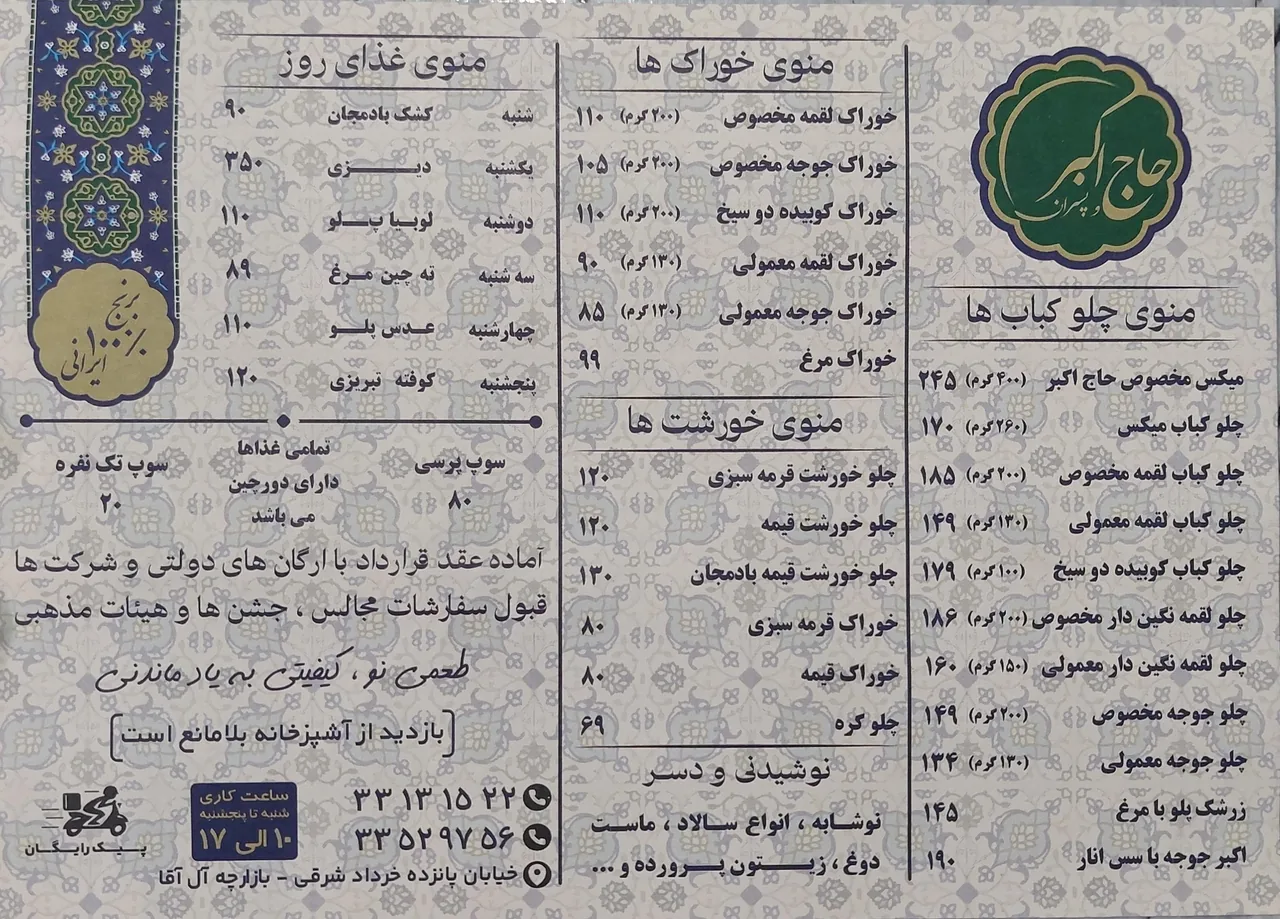 حاج اکبر
و پسران
منوی چلو کباب ها
میکس مخصوص حاج اکبر (۴۰۰ گرم) ۲۴۵
چلو کباب میکس (۲۶۰ گرم) ۱۷۰
چلو کباب لقمه مخصوص (۲۰۰ گرم) ۱۸۵
چلو کباب لقمه معمولی (۱۳۰ گرم) ۱۴۹
چلو کباب کوبیده دو سیخ (۱۰۰ گرم) ۱۷۹
چلو لقمه نگین دار مخصوص (۲۰۰ گرم) ۱۸۶
چلو لقمه نگین دار معمولی (۱۵۰ گرم) ۱۶۰
چلو جوجه مخصوص (۲۰۰ گرم) ۱۴۹
چلو جوجه معمولی (۱۳۰ گرم) ۱۳۴
زرشک پلو با مرغ ۱۴۵
اکبر جوجه با سس انار ۱۹۰
منوی خوراک ها
خوراک لقمه مخصوص (۲۰۰ گرم) ۱۱۰
خوراک جوجه مخصوص (۲۰۰ گرم) ۱۰۵
خوراک کوبیده دو سیخ (۲۰۰ گرم) ۱۱۰
خوراک لقمه معمولی (۱۳۰ گرم) ۹۰
خوراک جوجه معمولی (۱۳۰ گرم) ۸۵
خوراک مرغ ۹۹
منوی خورشت ها
چلو خورشت قرمه سبزی ۱۲۰
چلو خورشت قیمه ۱۲۰
چلو خورشت قیمه بادمجان ۱۳۰
خوراک قرمه سبزی ۸۰
خوراک قیمه ۸۰
چلو کره ۶۹
نوشیدنی و دسر
نوشابه ، انواع سالاد ، ماست
دوغ ، زیتون پرورده و ...
منوی غذای روز
شنبه کشک بادمجان ۹۰
یکشنبه دیزی ۳۵۰
دوشنبه لوبیا پلو ۱۱۰
سه شنبه ته چین مرغ ۸۹
چهارشنبه عدس پلو ۱۱۰
پنجشنبه کوفته تبریزی ۱۲۰
برنج
۱۰۰٪
ایرانی
سوپ پرسی
۸۰
تمامی غذاها
دارای دورچین
می باشد
سوپ تک نفره
۲۰
آماده عقد قرارداد با ارگان های دولتی و شرکت ها
قبول سفارشات مجالس ، جشن ها و هیئات مذهبی
طعمی نو ، کیفیتی به یاد ماندنی
[بازدید از آشپزخانه بلامانع است]
۳۳ ۱۳ ۱۵ ۲۲
۳۳ ۵۲ ۹۷ ۵۶
ساعت کاری
شنبه تا پنجشنبه
۱۰ الی ۱۷
پیک رایگان
خیابان پانزده خرداد شرقی - بازارچه آل آقا